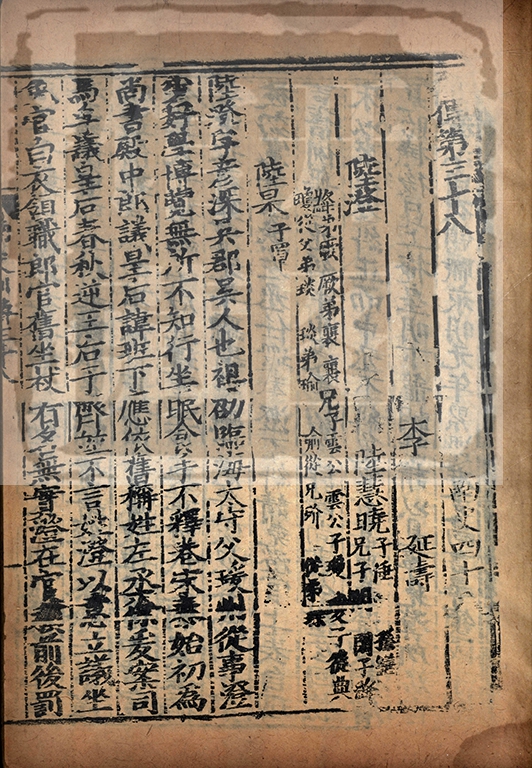 傳第三十八 南史四十
李 延壽
陸澄 陸慧曉 子倕
厥弟襄 襄兄子雲公 雲公子瓊 瓊子從典
瓊從父弟琰 琰弟瑜 瑜從兄玠
陸杲 子罩
陸澄字彦深吳郡吳人也祖劭臨海太守父瑗州從事澄
少好學博覽無所不知行坐眠食手不釋卷宋泰始初為
尚書殿中郎議皇后諱班下應依舊稱姓左丞徐爰案司
馬孚議皇后春秋逆王后于齊並不言姓澄以意立議坐
免官白衣領職郎官舊坐杖有名無實澄在官前後罰